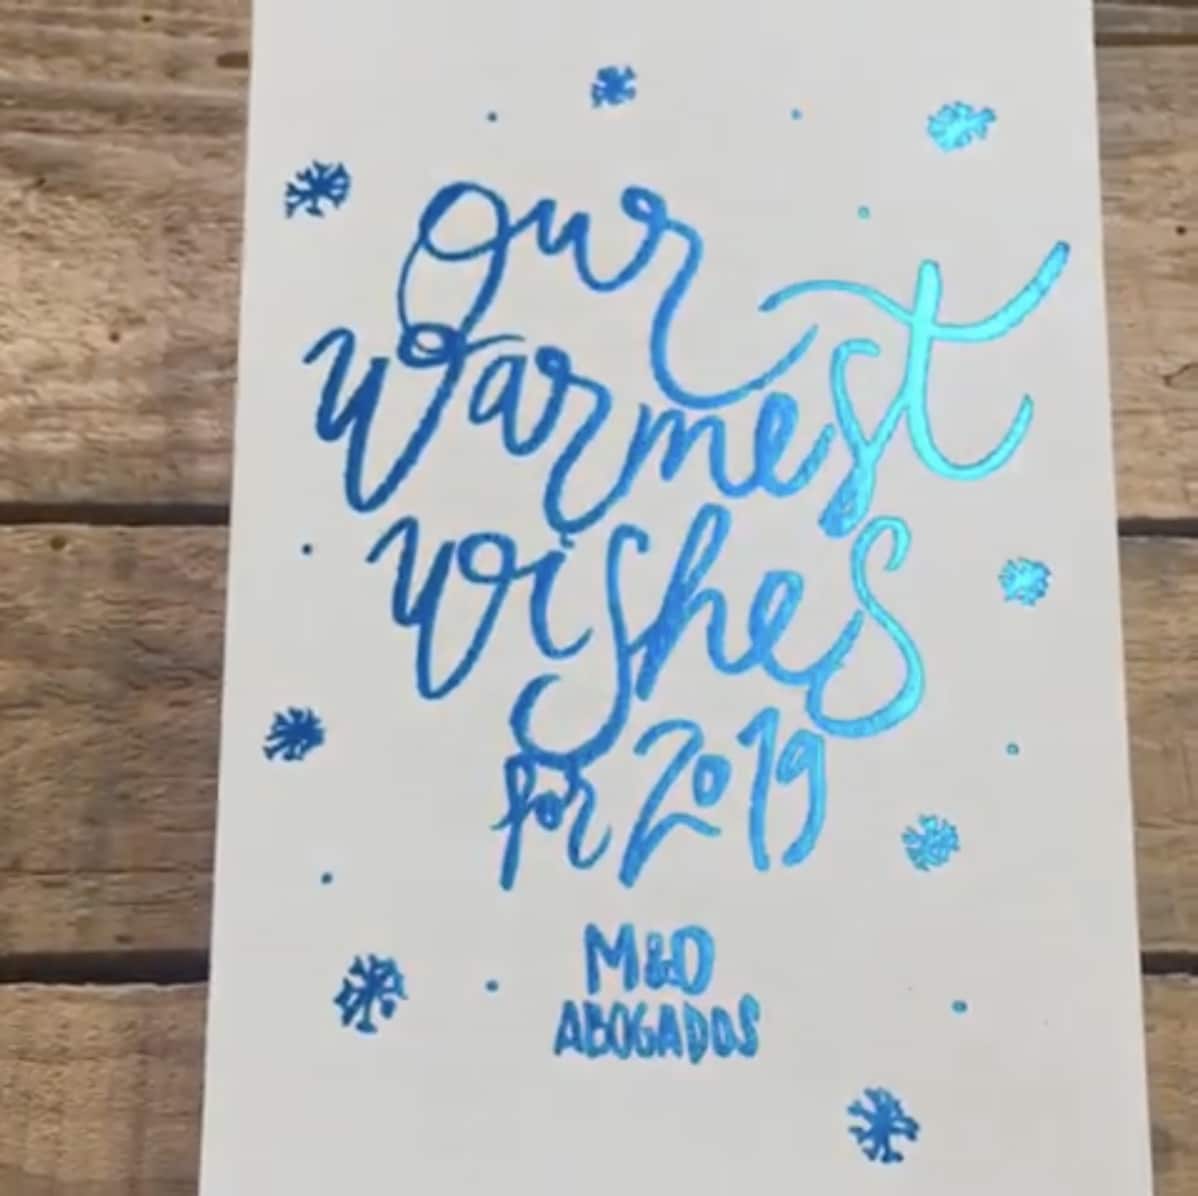 Our
Warmest
Wishes
for 2019
M&D
ABOGADOS